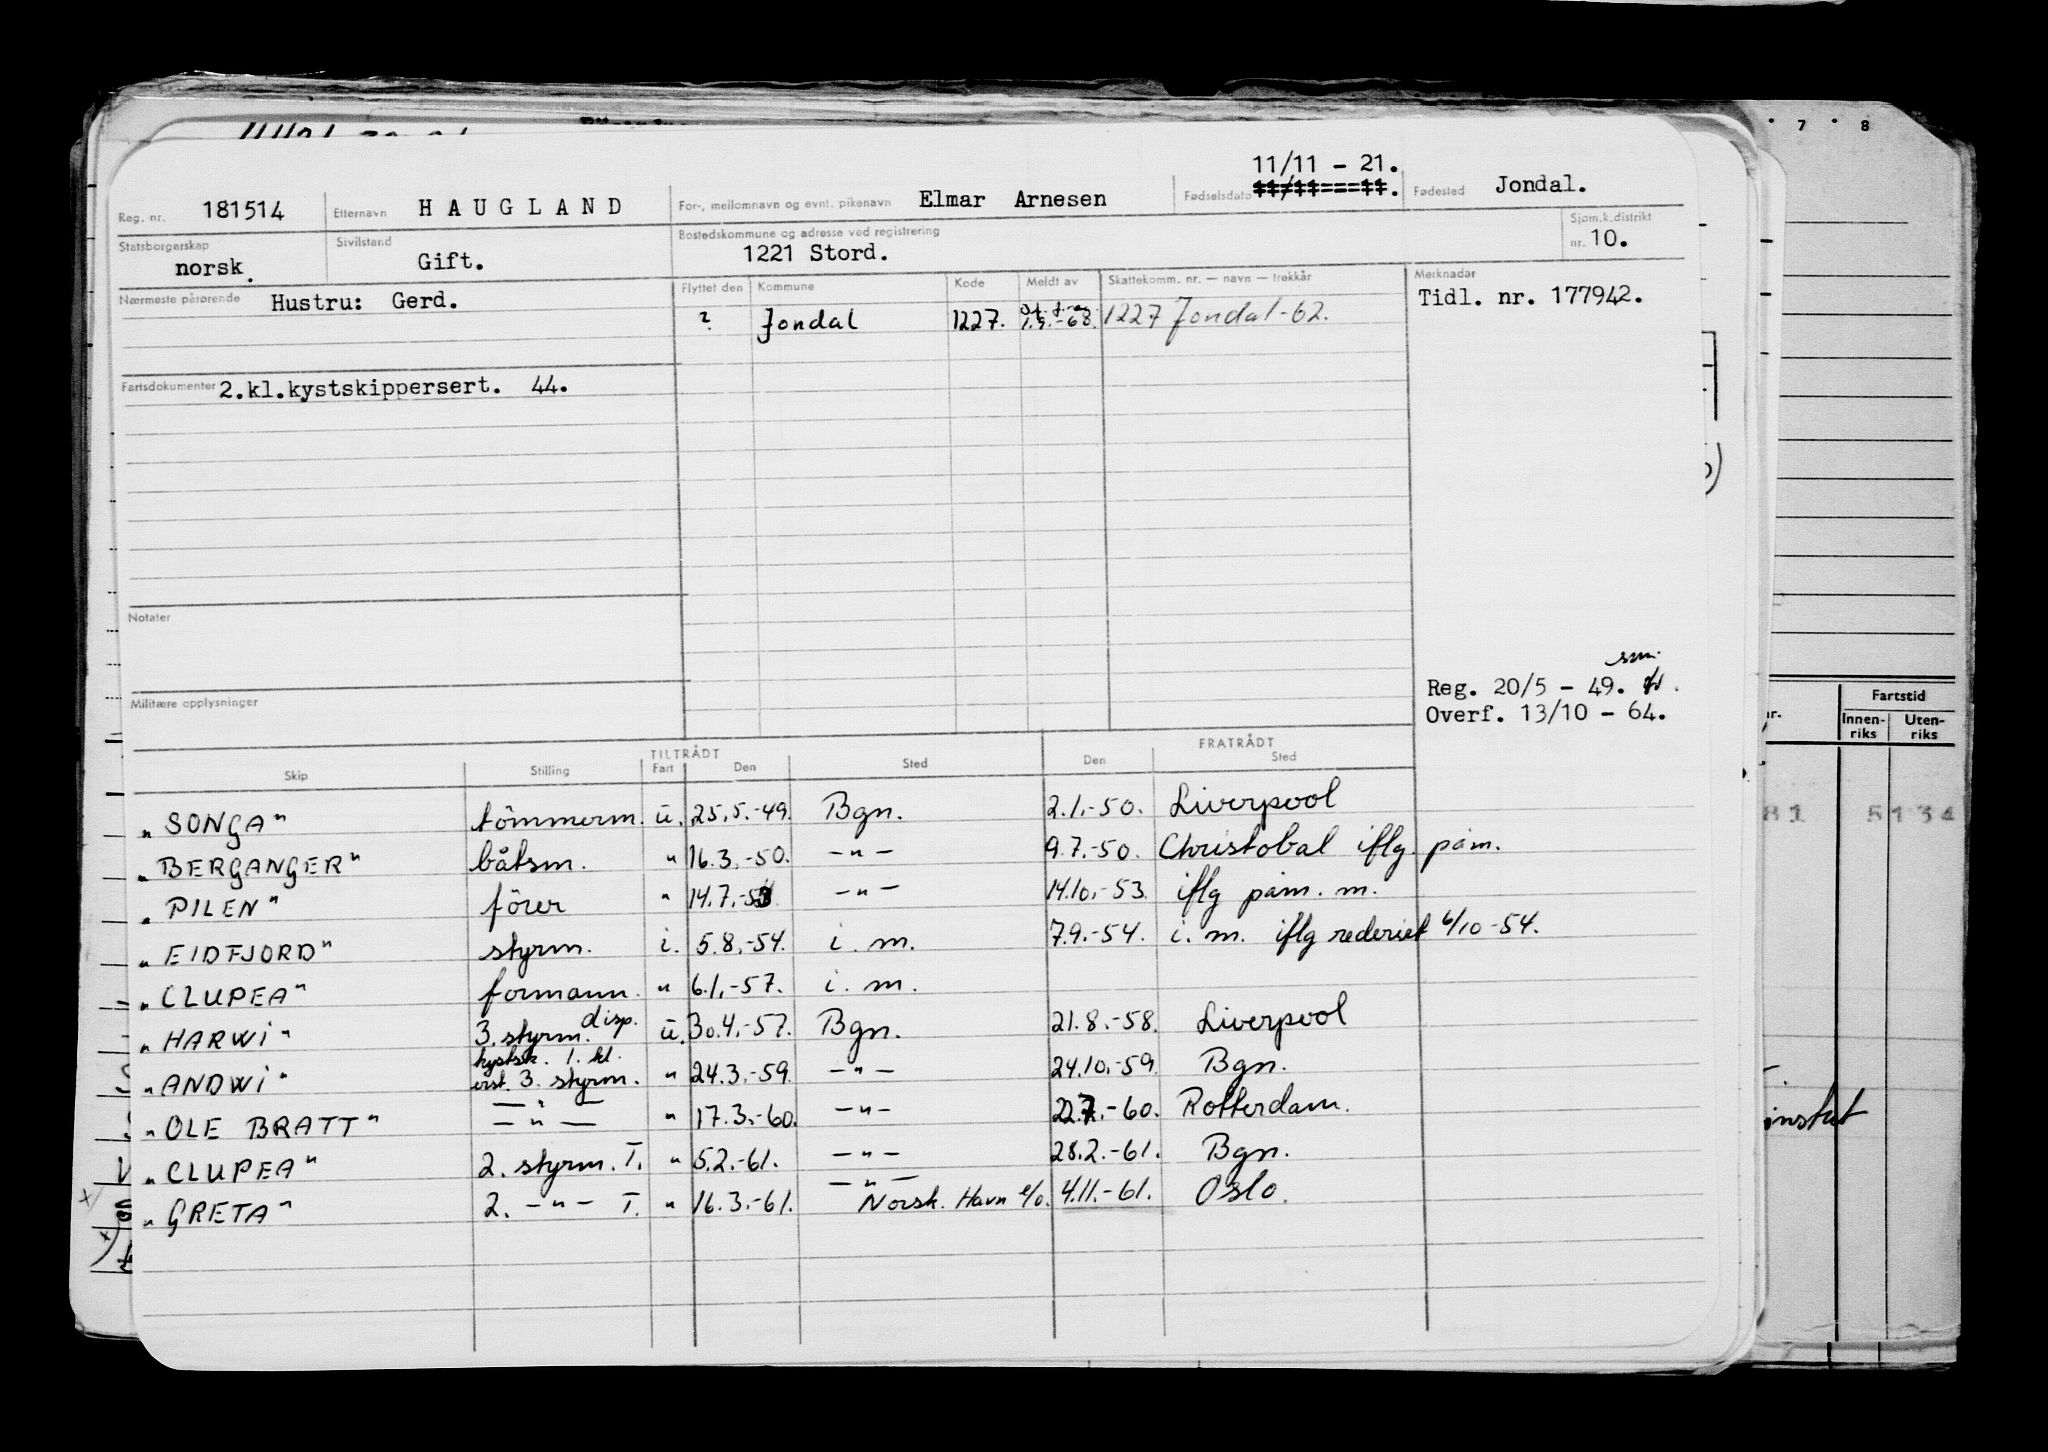 7 · 8
11/11 - 21.
Reg. nr. 181514 Etternavn HAUGLAND For-, mellomnavn og evnt. pikenavn Elmar Arnesen Fødselsdato Fødested Jondal.
Statsborgerskap norsk. Sivilstand Gift. Bostedskommune og adresse ved registrering 1221 Stord. Sjøm.k.distrikt nr. 10.
Nærmeste pårørende Hustru: Gerd. Flyttet den Kommune Kode Meldt av Skattekomm. nr. — navn — trekkår Merknader
Tidl. nr. 177942.
? Jondal 1227. -68. 1227 Jondal -62.
Fartsdokumenter 2.kl.kystskippersert. 44.
Notater
sm.
Reg. 20/5 - 49.
Militære opplysninger Overf. 13/10 - 64.
Fartstid
Innen-riks Uten-riks
TILTRÅDT FRATRÅDT
Skip Stilling Fart Den Sted Den Sted
"SONGA" tömmerm. u. 25.5.-49. Bgn. 2.1.-50. Liverpool
"BERGANGER" båtsm. " 16.3.-50. -"- 9.7.-50. Christobal iflg. påm.
"PILEN" förer " 14.7.-53. -"- 14.10.-53. iflg påm. m.
"EIDFJORD" styrm. i. 5.8.-54. i. m. 7.9.-54. i. m. iflg rederiet 6/10-54.
"CLUPEA" formann. " 6.1.-57. i. m.
"HARWI" 3. styrm. disp. u. 30.4.-57. Bgn. 21.8.-58. Liverpool
kystsk. 1. kl.
"ANDWI" 3. styrm. " 24.3.-59. -"- 24.10.-59. Bgn.
-"-
"OLE BRATT" -"- " 17.3.-60. -"- 22.7.-60. Rotterdam.
"CLUPEA" 2. styrm. T. " 5.2.-61. -"- 28.2.-61. Bgn.
-"-
"GRETA" 2. -"- T. " 16.3.-61. Norsk. Havn e/o. 4.11.-61. Oslo.